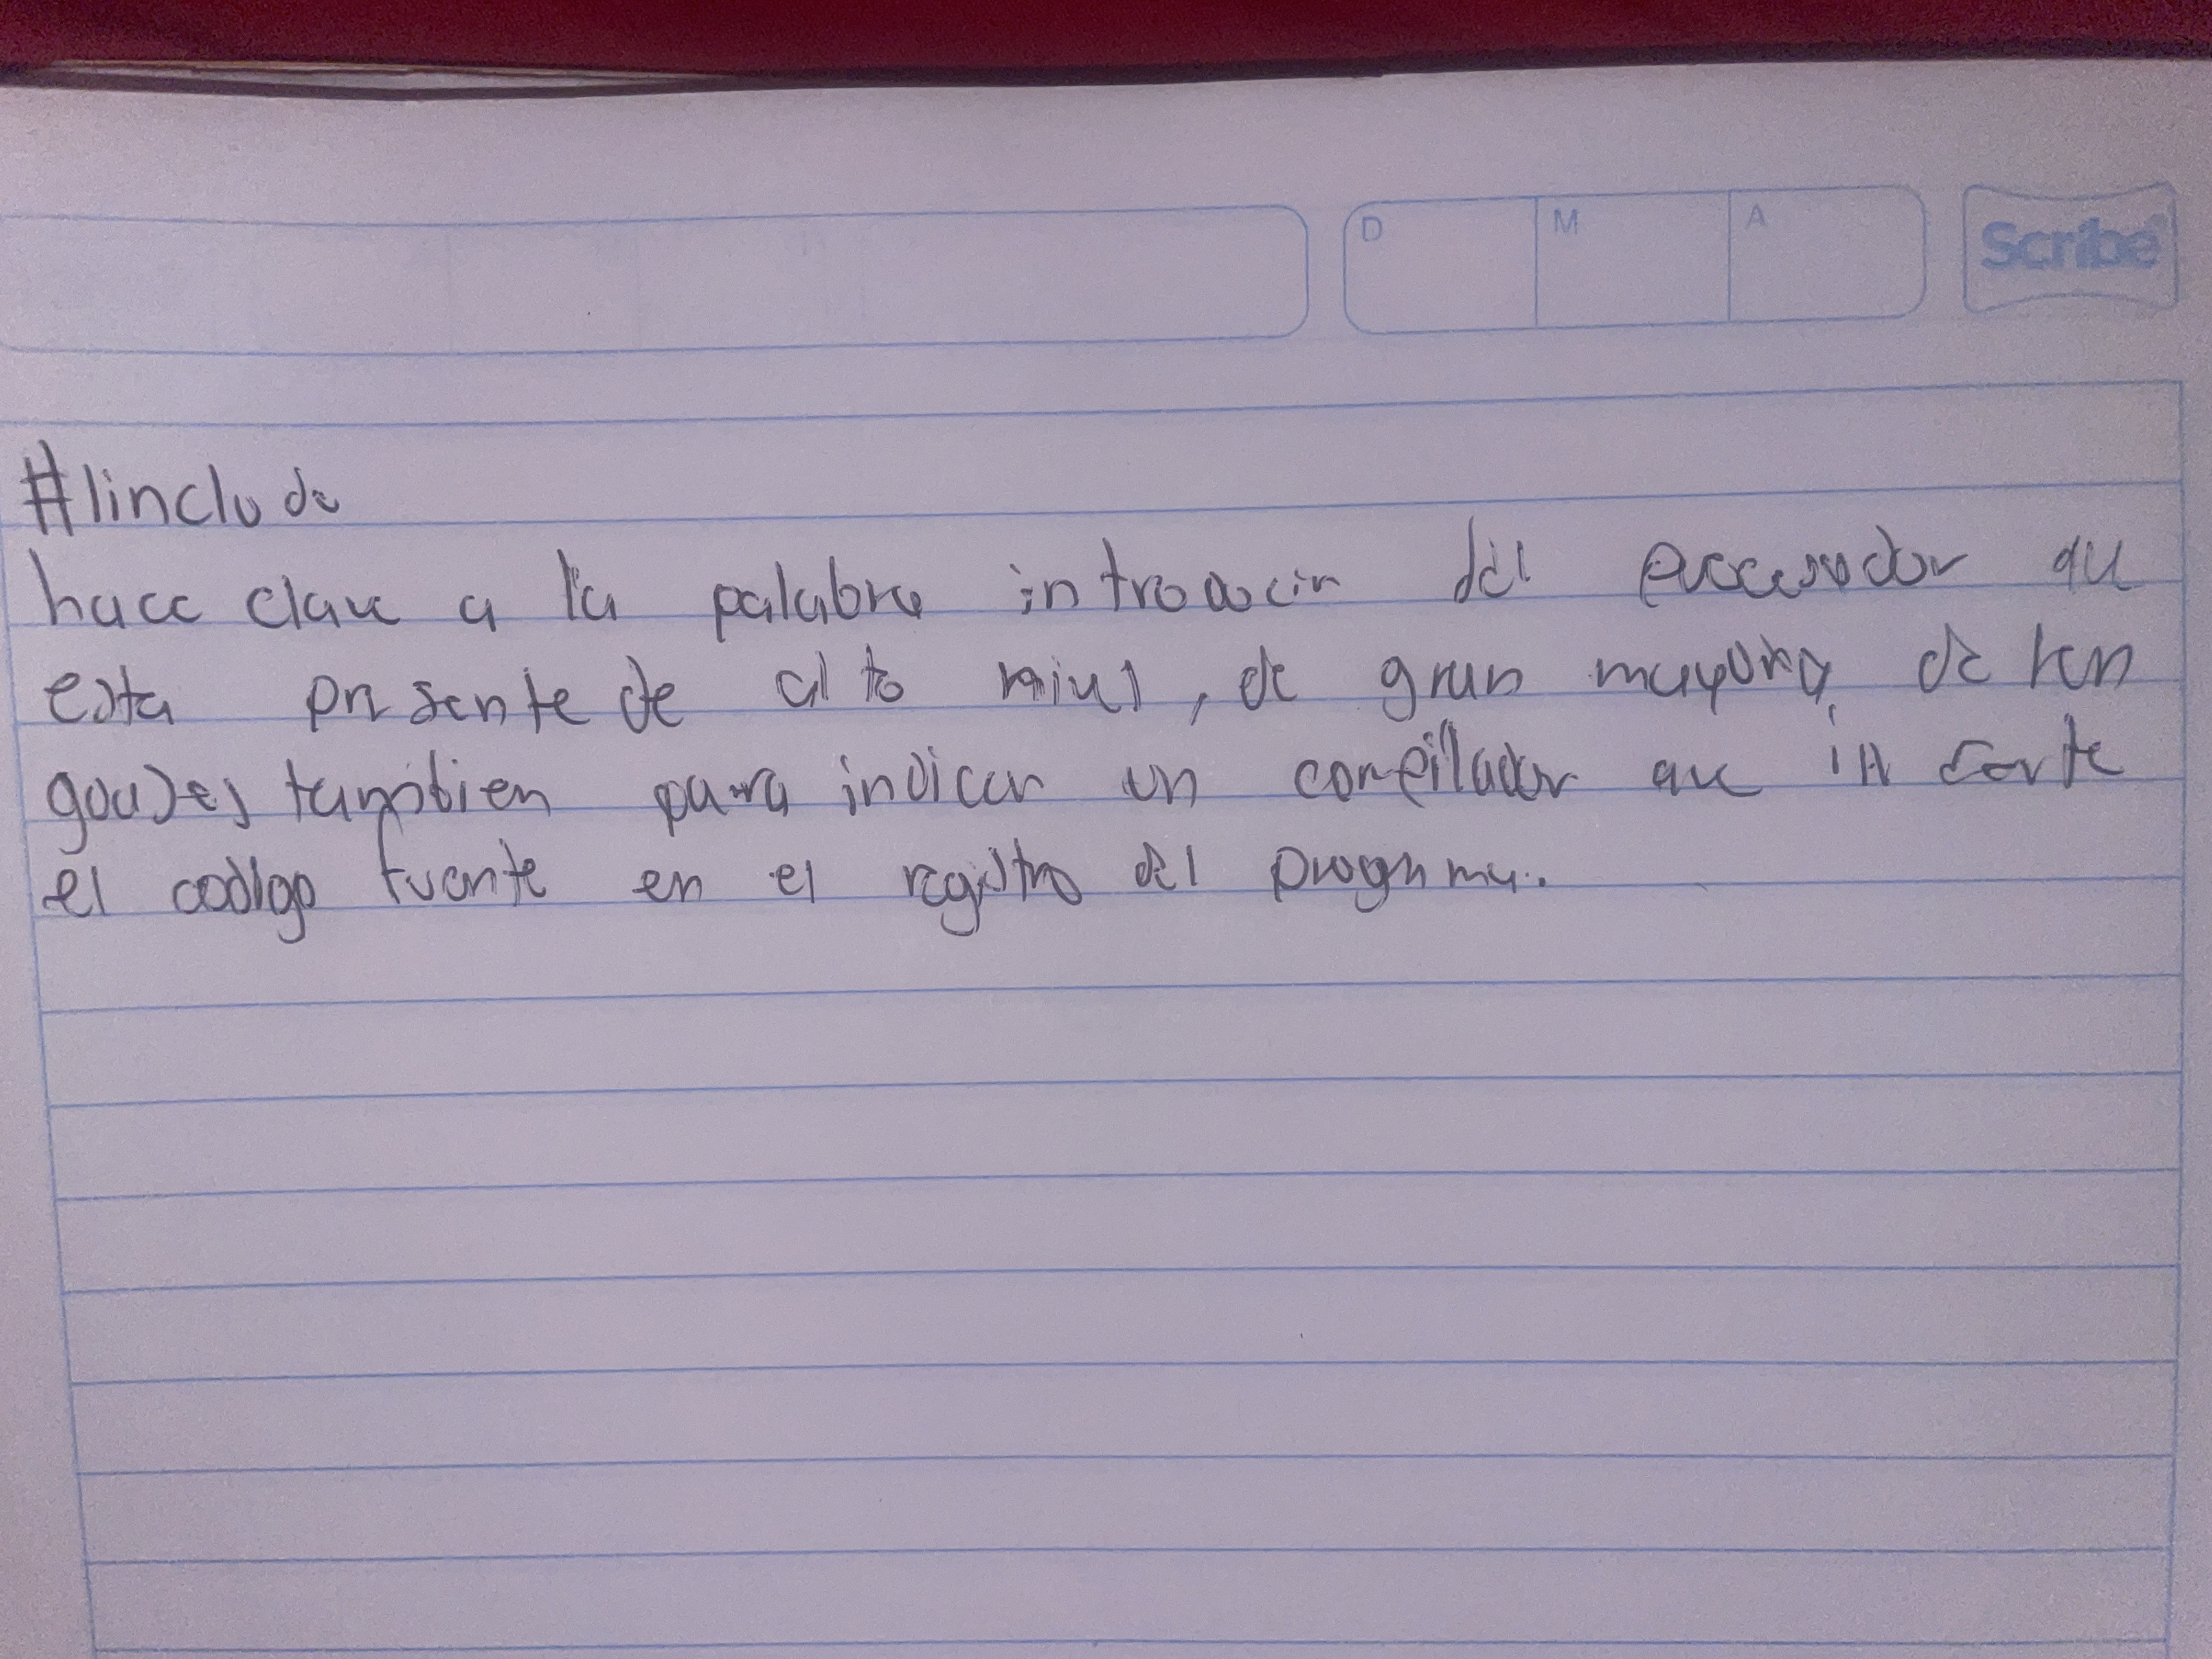 D M A Scribe
#linclude
hace clave a la palabra introducir del que
esta presente de alto nivel, de gran mayoria de len
guajes tambien para indicar un compilador que
el codigo fuente en el registro del programa.